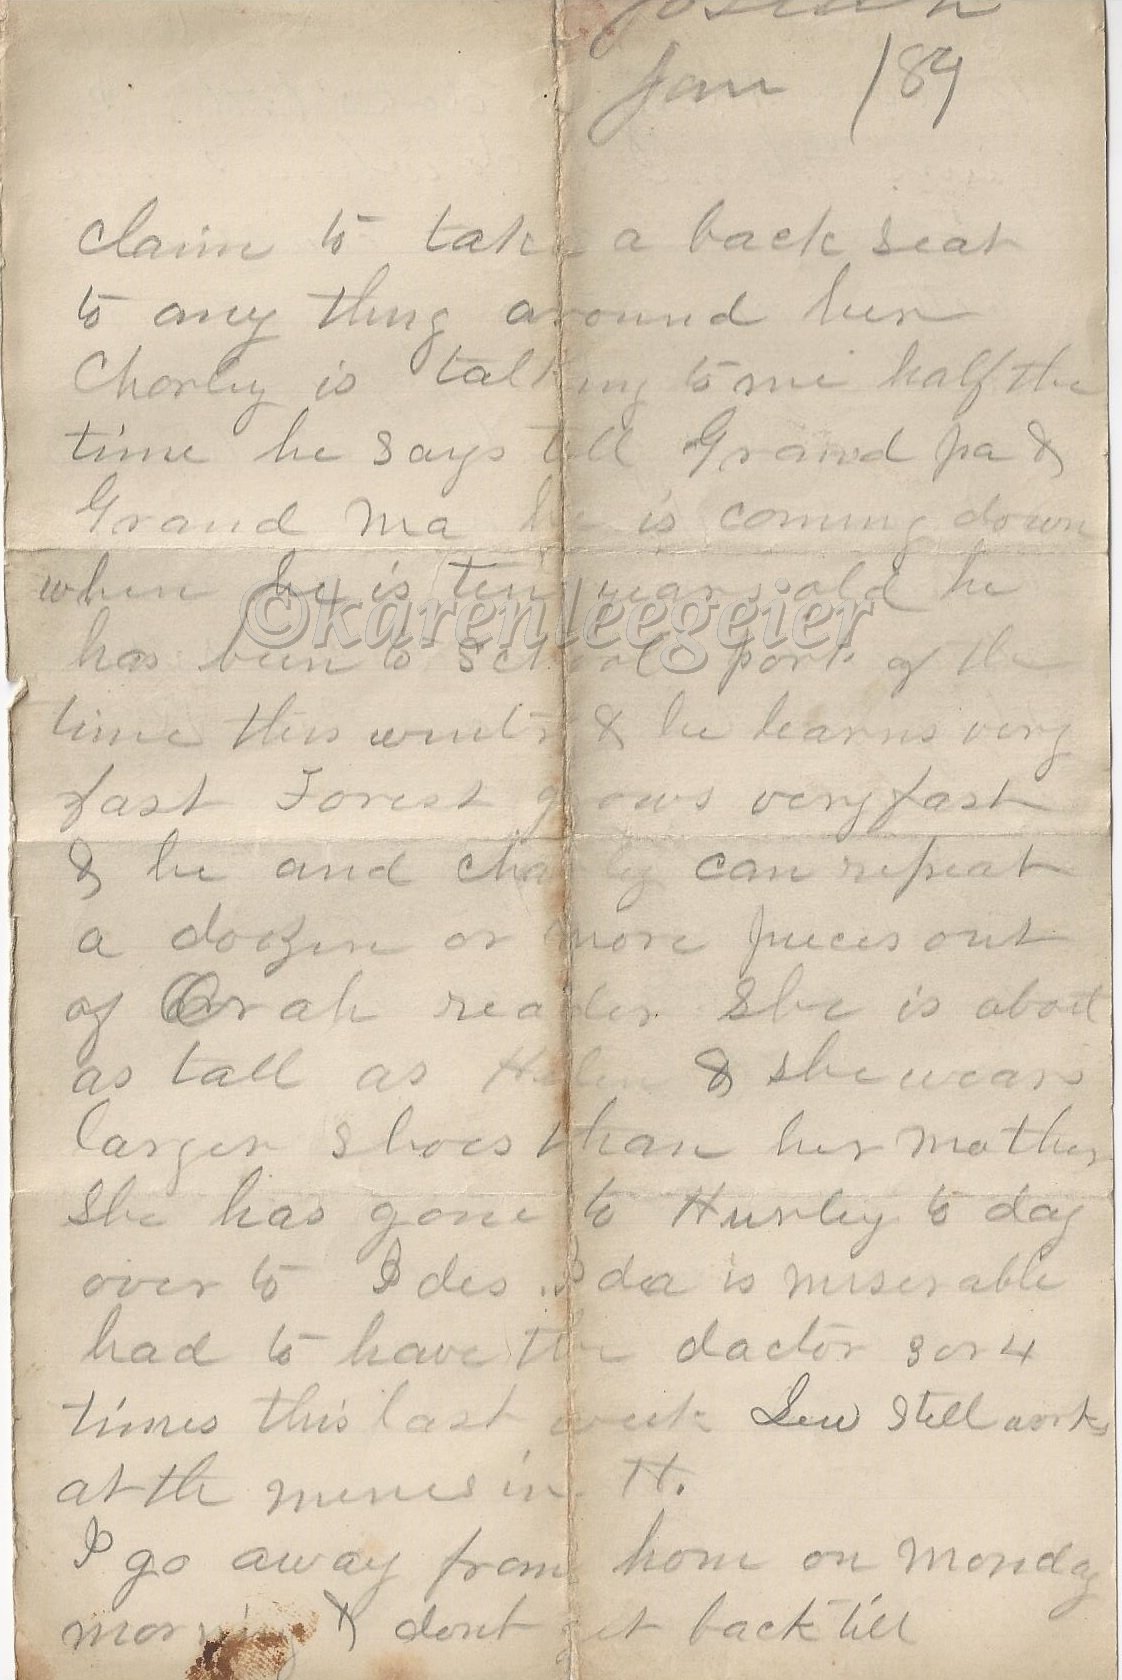 Josiah
Jan /89
claim to take a back seat
to any thing around here
Charley is talking to me half the
time he says tell Grand pa &
Grand Ma he is coming down
when he is ten years old he
©karenleegeier
has been to School part of the
time this winter & he learns very
fast Forest grows very fast
& he and Charley can repeat
a doozen or more pieces out
of Orah reader She is about
as tall as Helen & she wears
larger shoes than her mother
She has gone to Hurley to day
over to Ides. Ida is miserable
had to have the doctor 3 or 4
times this last week Lew still works
at the mines in H.
I go away from home on Monday
morning & dont get back till